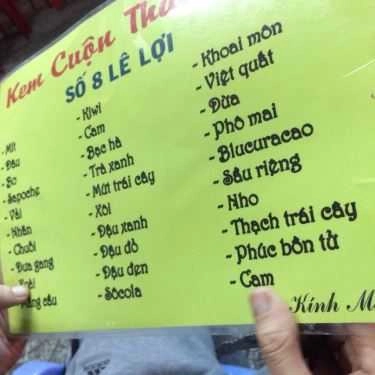 Kem Cuộn
SỐ 8 LÊ LỢI
- Mít
- Dâu
- Bơ
- Sapoche
- Vải
- Nhãn
- Chuối
- Dưa gang
- Kiwi
- Cam
- Bạc hà
- Trà xanh
- Mứt trái cây
- Xôi
- Đậu xanh
- Đậu đỏ
- Đậu đen
- Sôcôla
- Khoai môn
- Việt quất
- Dừa
- Phô mai
- Blucuracao
- Sầu riêng
- Nho
- Thạch trái cây
- Phúc bồn tử
- Cam
Kính